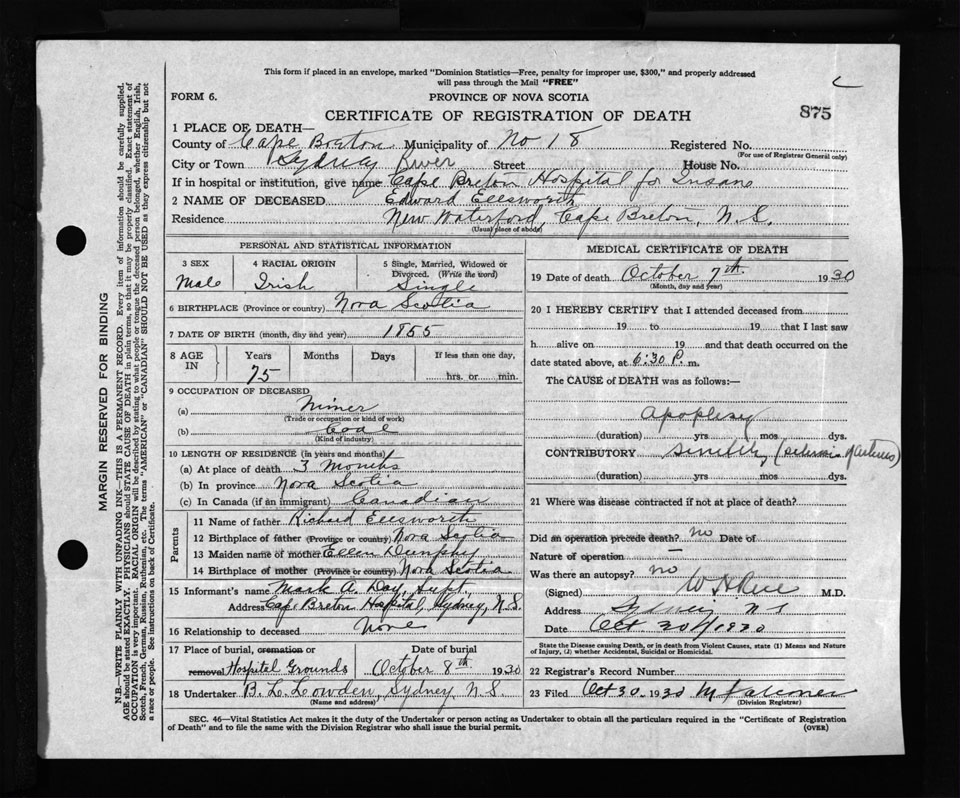 This form if placed in an envelope, marked "Dominion Statistics—Free, penalty for improper use, $300," and properly addressed
will pass through the Mail "FREE"
FORM 6.
PROVINCE OF NOVA SCOTIA
875
CERTIFICATE OF REGISTRATION OF DEATH
1 PLACE OF DEATH—
County of Cape Breton Municipality of No 18 Registered No.
(For use of Registrar General only)
City or Town Sydney River Street House No.
If in hospital or institution, give name Cape Breton Hospital for Insane
2 NAME OF DECEASED Edward Ellsworth
Residence New Waterford, Cape Breton, N.S.
(Usual place of abode)
PERSONAL AND STATISTICAL INFORMATION
3 SEX
Male
4 RACIAL ORIGIN
Irish
5 Single, Married, Widowed or
Divorced. (Write the word)
Single
6 BIRTHPLACE (Province or country) Nova Scotia
7 DATE OF BIRTH (month, day and year) 1855
8 AGE
IN
Years
75
Months
Days
If less than one day,
hrs. or min.
9 OCCUPATION OF DECEASED
(a) Miner
(Trade or occupation or kind of work)
(b) Coal
(Kind of industry)
10 LENGTH OF RESIDENCE (in years and months)
(a) At place of death 3 Months
(b) In province Nova Scotia
(c) In Canada (if an immigrant) Canadian
Parents
11 Name of father Richard Ellsworth
12 Birthplace of father (Province or country) Nova Scotia
13 Maiden name of mother Ellen Dunphy
14 Birthplace of mother (Province or country) Nova Scotia
15 Informant's name Mark A. Day, Supt.,
Address Cape Breton Hospital, Sydney, N.S.
16 Relationship to deceased None
17 Place of burial, cremation or
removal Hospital Grounds
Date of burial
October 8th. 1930
18 Undertaker B. L. Lowden, Sydney, N.S.
(Name and address)
MEDICAL CERTIFICATE OF DEATH
19 Date of death October 7th. 1930
(Month, day and year)
20 I HEREBY CERTIFY that I attended deceased from
19 to 19 that I last saw
h alive on 19 and that death occurred on the
date stated above, at 6:30 P. m.
The CAUSE of DEATH was as follows:—
apoplexy
(duration) yrs mos dys.
CONTRIBUTORY senility (
(duration) yrs mos dys.
21 Where was disease contracted if not at place of death?
Did an operation precede death? no Date of
Nature of operation —
Was there an autopsy? no
(Signed) M.D.
Address Sydney NS
Date Oct 30/1930
State the Disease causing Death, or in death from Violent Causes, state (1) Means and Nature
of Injury, (2) whether Accidental, Suicidal or Homicidal.
22 Registrar's Record Number
23 Filed Oct 30. 1930 M Falconer
(Division Registrar)
SEC. 46—Vital Statistics Act makes it the duty of the Undertaker or person acting as Undertaker to obtain all the particulars required in the "Certificate of Registration
of Death" and to file the same with the Division Registrar who shall issue the burial permit.
(OVER)
MARGIN RESERVED FOR BINDING
N.B.—WRITE PLAINLY WITH UNFADING INK—THIS IS A PERMANENT RECORD. Every item of information should be carefully supplied.
AGE should be stated EXACTLY. PHYSICIANS should STATE CAUSE OF DEATH in plain terms, so that it may be properly classified. Exact statement of
OCCUPATION is very important. RACIAL ORIGIN will be described by stating to what people or tongue the deceased person belonged, whether English, Irish,
Scotch, French, German, Russian, Ruthenian, etc. The terms "AMERICAN" or "CANADIAN" SHOULD NOT BE USED as they express citizenship but not
a race or people. See instructions on back of Certificate.